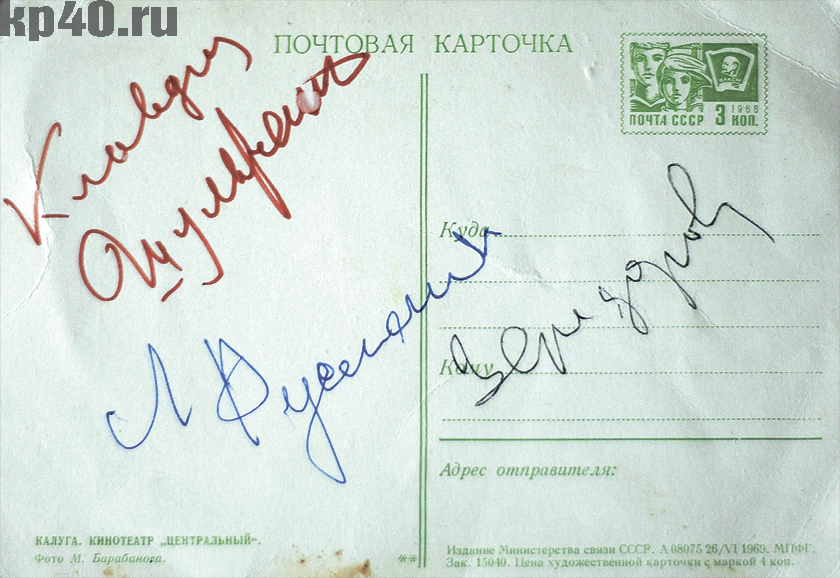 kp40.ru
ПОЧТОВАЯ КАРТОЧКА
1966
ПОЧТА СССР 3 КОП.
Клавдия
Шульженко
Л Русланова
Куда
Кому
Адрес отправителя:
КАЛУГА. КИНОТЕАТР „ЦЕНТРАЛЬНЫЙ".
Фото М. Барабанова.
**
Издание Министерства связи СССР. А 08075 26/VI 1969. МПФГ.
Зак. 15040. Цена художественной карточки с маркой 4 коп.